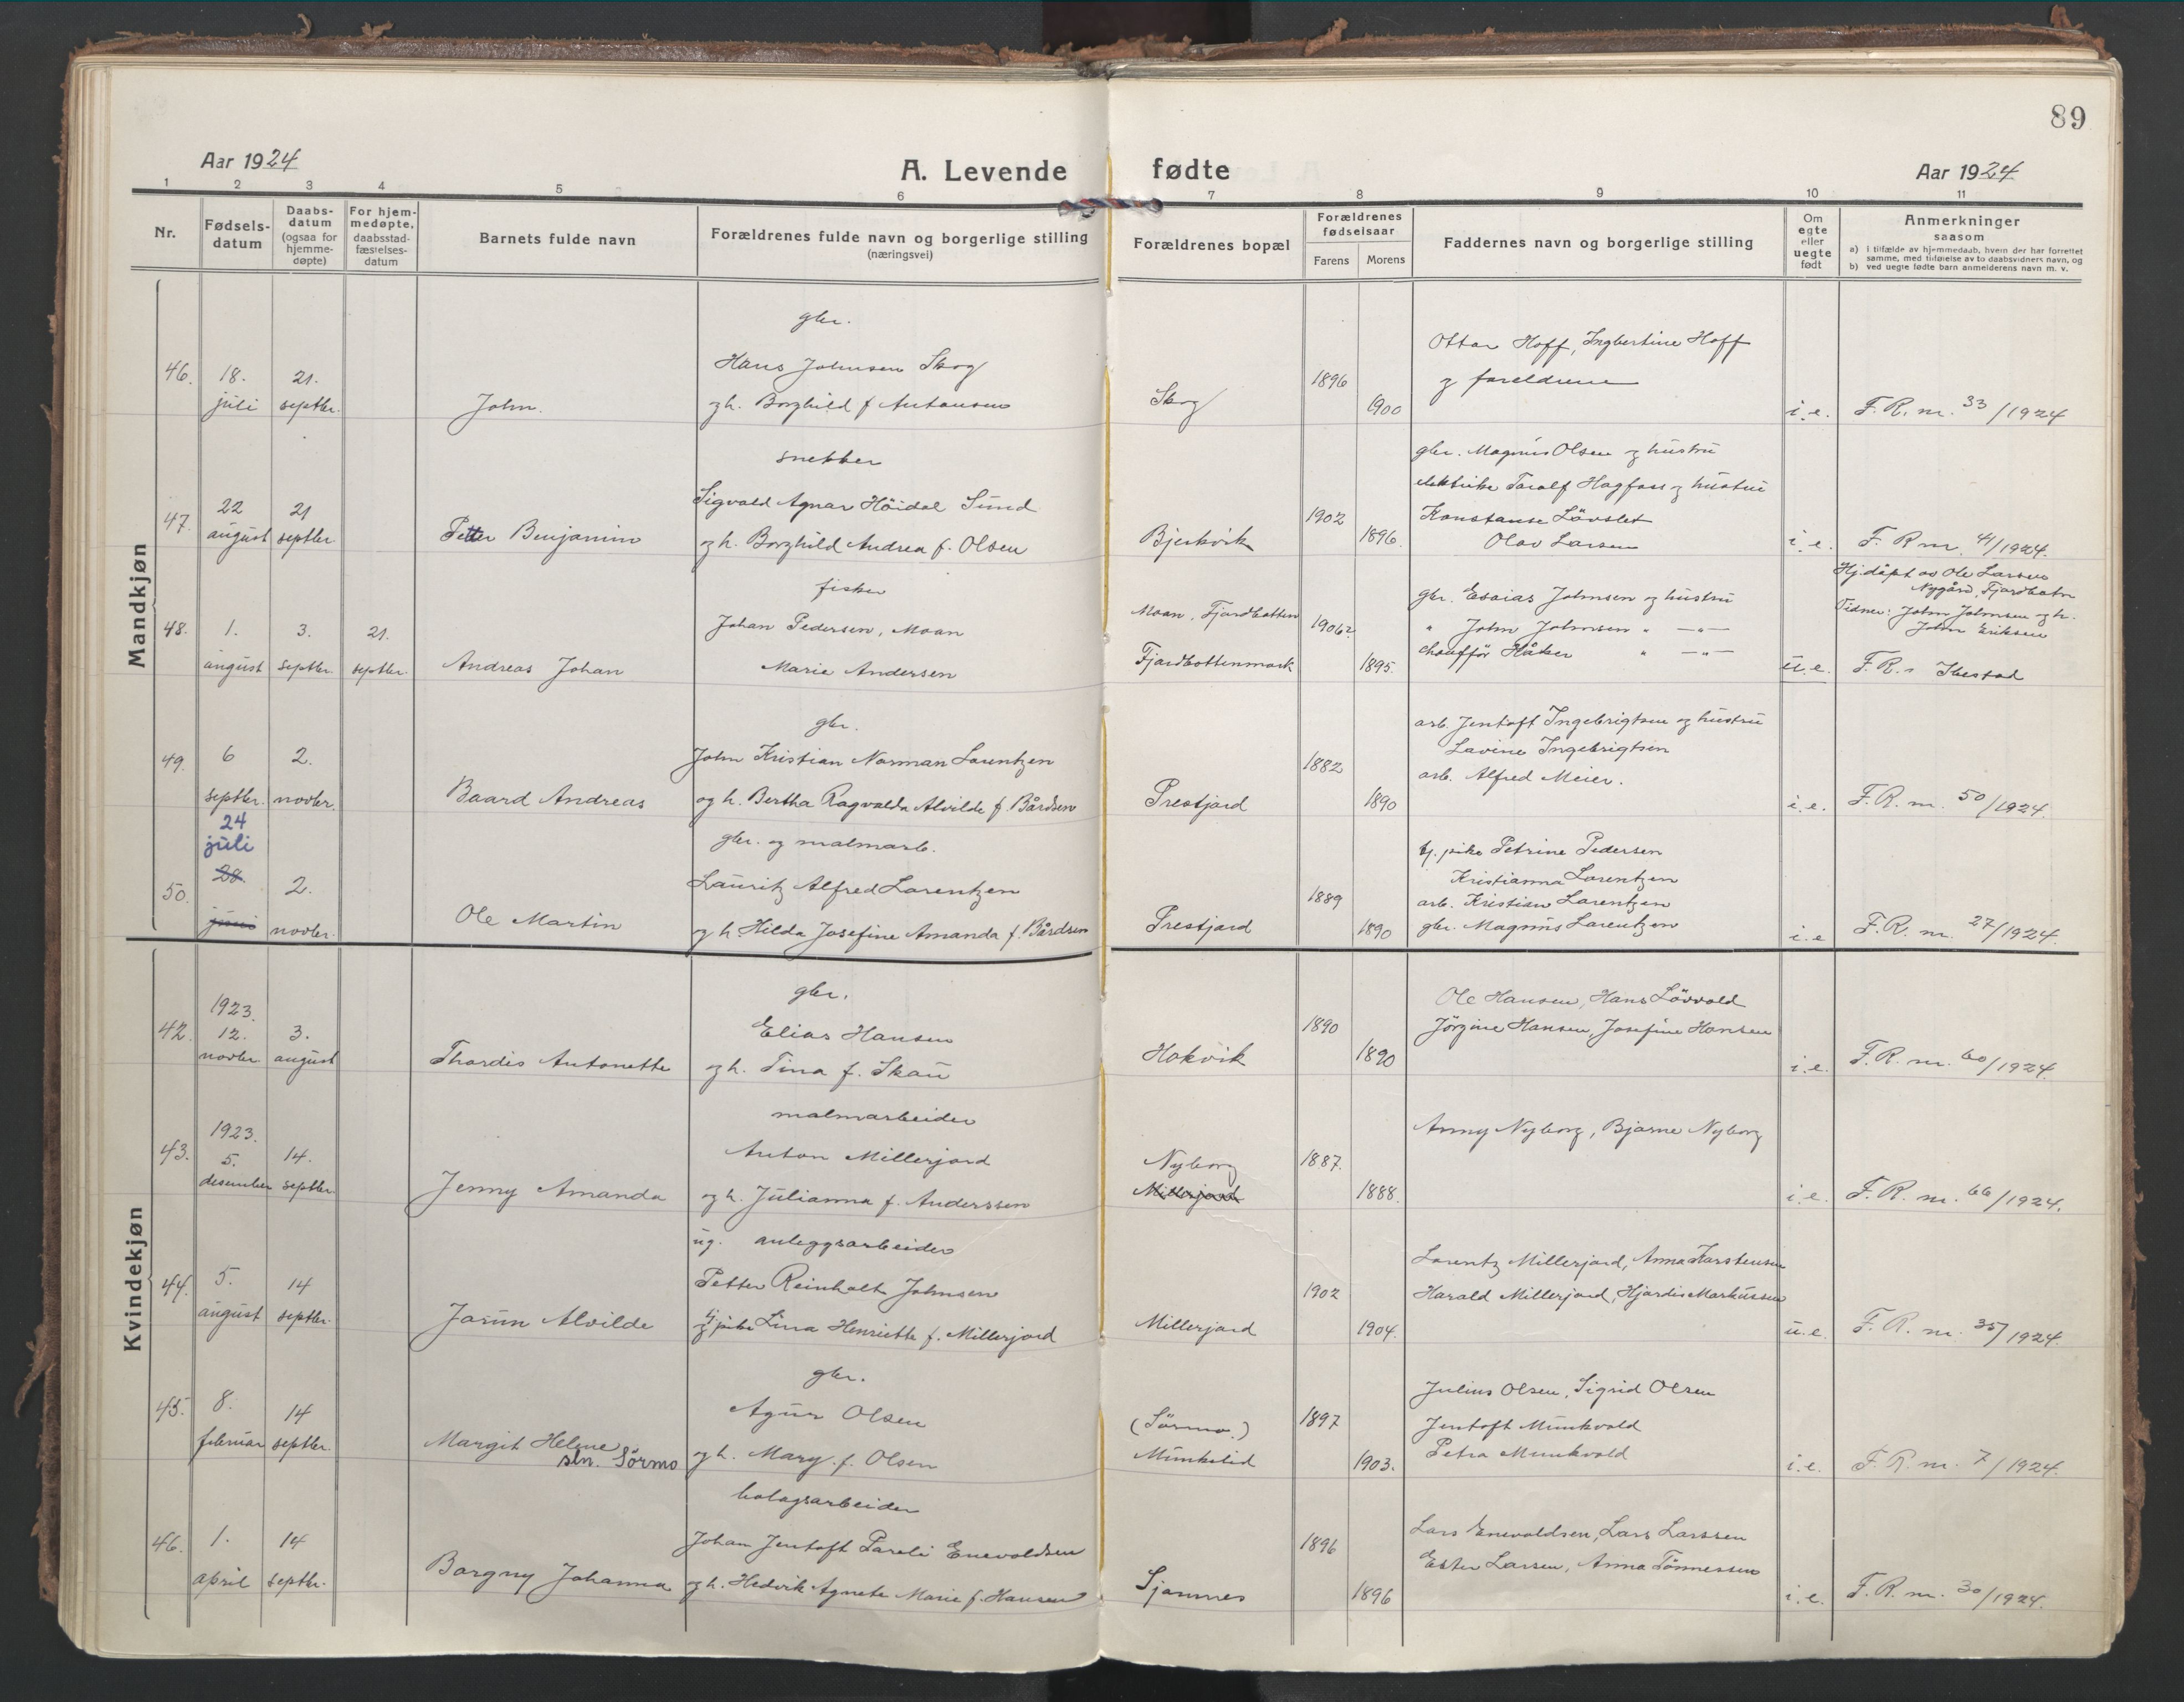 89
Aar 1924
A. Levende fødte
Aar 1924
1 2 3 4 5 6 7 8 9 10 11
Nr.
Fødsels-
datum
Daabs-
datum
(ogsaa for
hjemme-
døpte)
For hjem-
medøpte,
daabsstad-
fæstelses-
datum
Barnets fulde navn
Forældrenes fulde navn og borgerlige stilling
(næringsvei)
Forældrenes bopæl
Forældrenes
fødselsaar
Farens Morens
Faddernes navn og borgerlige stilling
Om
egte
eller
uegte
født
Anmerkninger
saasom
a) i tilfælde av hjemmedaab, hvem der har forrettet
samme, med tilføielse av to daabsvidners navn, og
b) ved uegte fødte barn anmelderens navn m. v.
Mandkjøn
gbr.
Ottar Hoff, Ingbertine Hoff
46. 18. 21. Hans Johnsen Skog 1896 og foreldrene
juli septbr. John. og h. Borghild f Antonsen Skog 1900 i.e. F. R. nr. 33/1924
snekker
gbr. Magnus Olsen og hustru
47. 22 21 Sigvald Agnar Höidal Sund 1902 Toralf Hagfoss og hustru
Konstanse Lövslet
august septbr Petter Benjamin og h. Borghild Andrea f. Olsen Bjerkvik 1896. Olav Larsen i.e. F. R nr. 41/1924.
fisker
Hj.døpt av Ole Larsen
Nygård, Fjordbotn
48. 1. 3. 21. Johan Pedersen, Moan Moan, Fjordbotten 1906? gbr. Esaias Johnsen og hustru
Vidner: John Johnsen og h.
" John Johnsen " —"—
John Eriksen
august septbr. septbr. Andreas Johan Marie Andersen Fjordbottenmark 1895. chauffør Håker " —"— u.e. F. R. Ibestad
gbr.
arb. Jentoft Ingebrigtsen og hustru
49. 6 2. John Kristian Norman Lorentzen 1882 Lovine Ingebrigtsen
arb. Alfred Meier.
septbr. novbr. Baard Andreas og h. Bertha Ragvalda Alvilde f. Bårdsen Prestjord 1890 i.e. F. R. nr. 50/1924.
24
juli
gbr. og malmarb.
tj. pike Petrine Pedersen
50. 28. 2. Lauritz Alfred Lorentzen 1889 Kristianna Lorentzen
arb. Kristian Lorentzen
juni novbr. Ole Martin og h. Hilda Josefine Amanda f. Bårdsen Prestjord 1890 gbr. Magnus Lorentzen i.e F. R. nr. 27/1924.
Kvindekjøn
1923. gbr.
42. 12. 3. Elias Hansen 1890 Ole Hansen, Hans Lövvold
Jörgine Hansen, Josefine Hansen
novbr. august Thordis Antonette og h. Tina f. Skau Hakvik 1890 i.e. F. R. nr. 60/1924.
1923. malmarbeider
Anny Nyborg, Bjarne Nyborg
43. 5. 14. Anton Millerjord Nyborg 1887.
desember septbr. Jenny Amanda og h. Julianna f. Anderssen Millerjord 1888. i.e. F. R. nr. 66/1924.
ug. anleggsarbeider
Lorentz Millerjord, Anna Karstensen
44. 5. 14 Petter Reinholt Johnsen 1902 Harald Millerjord, Hjördis Markussen
august septbr. Jorun Alvilde og tj pike Lina Henriette f. Millerjord Millerjord 1904. u.e. F. R. nr. 35/1924.
gbr.
Julius Olsen, Sigrid Olsen
45. 8. 14 Agur Olsen (Sörmo.) 1897 Jentoft Munkvold
februar septbr. Margit Helene og h. Mary f. Olsen Munkelid 1903. Petra Munkvold i.e. F. R. nr. 7/1924.
sln. Sörmo
bolagsarbeider
46. 1. 14 Johan Jentoft Pareli Enevoldsen 1896 Lars Enevoldsen, Lars Larssen
Ester Larsen, Anna Tönnessen
april septbr. Borgny Johanna og h. Hedvik Agnete Marie f. Hansen Sjomnes 1896 i.e. F. R. nr. 30/1924.